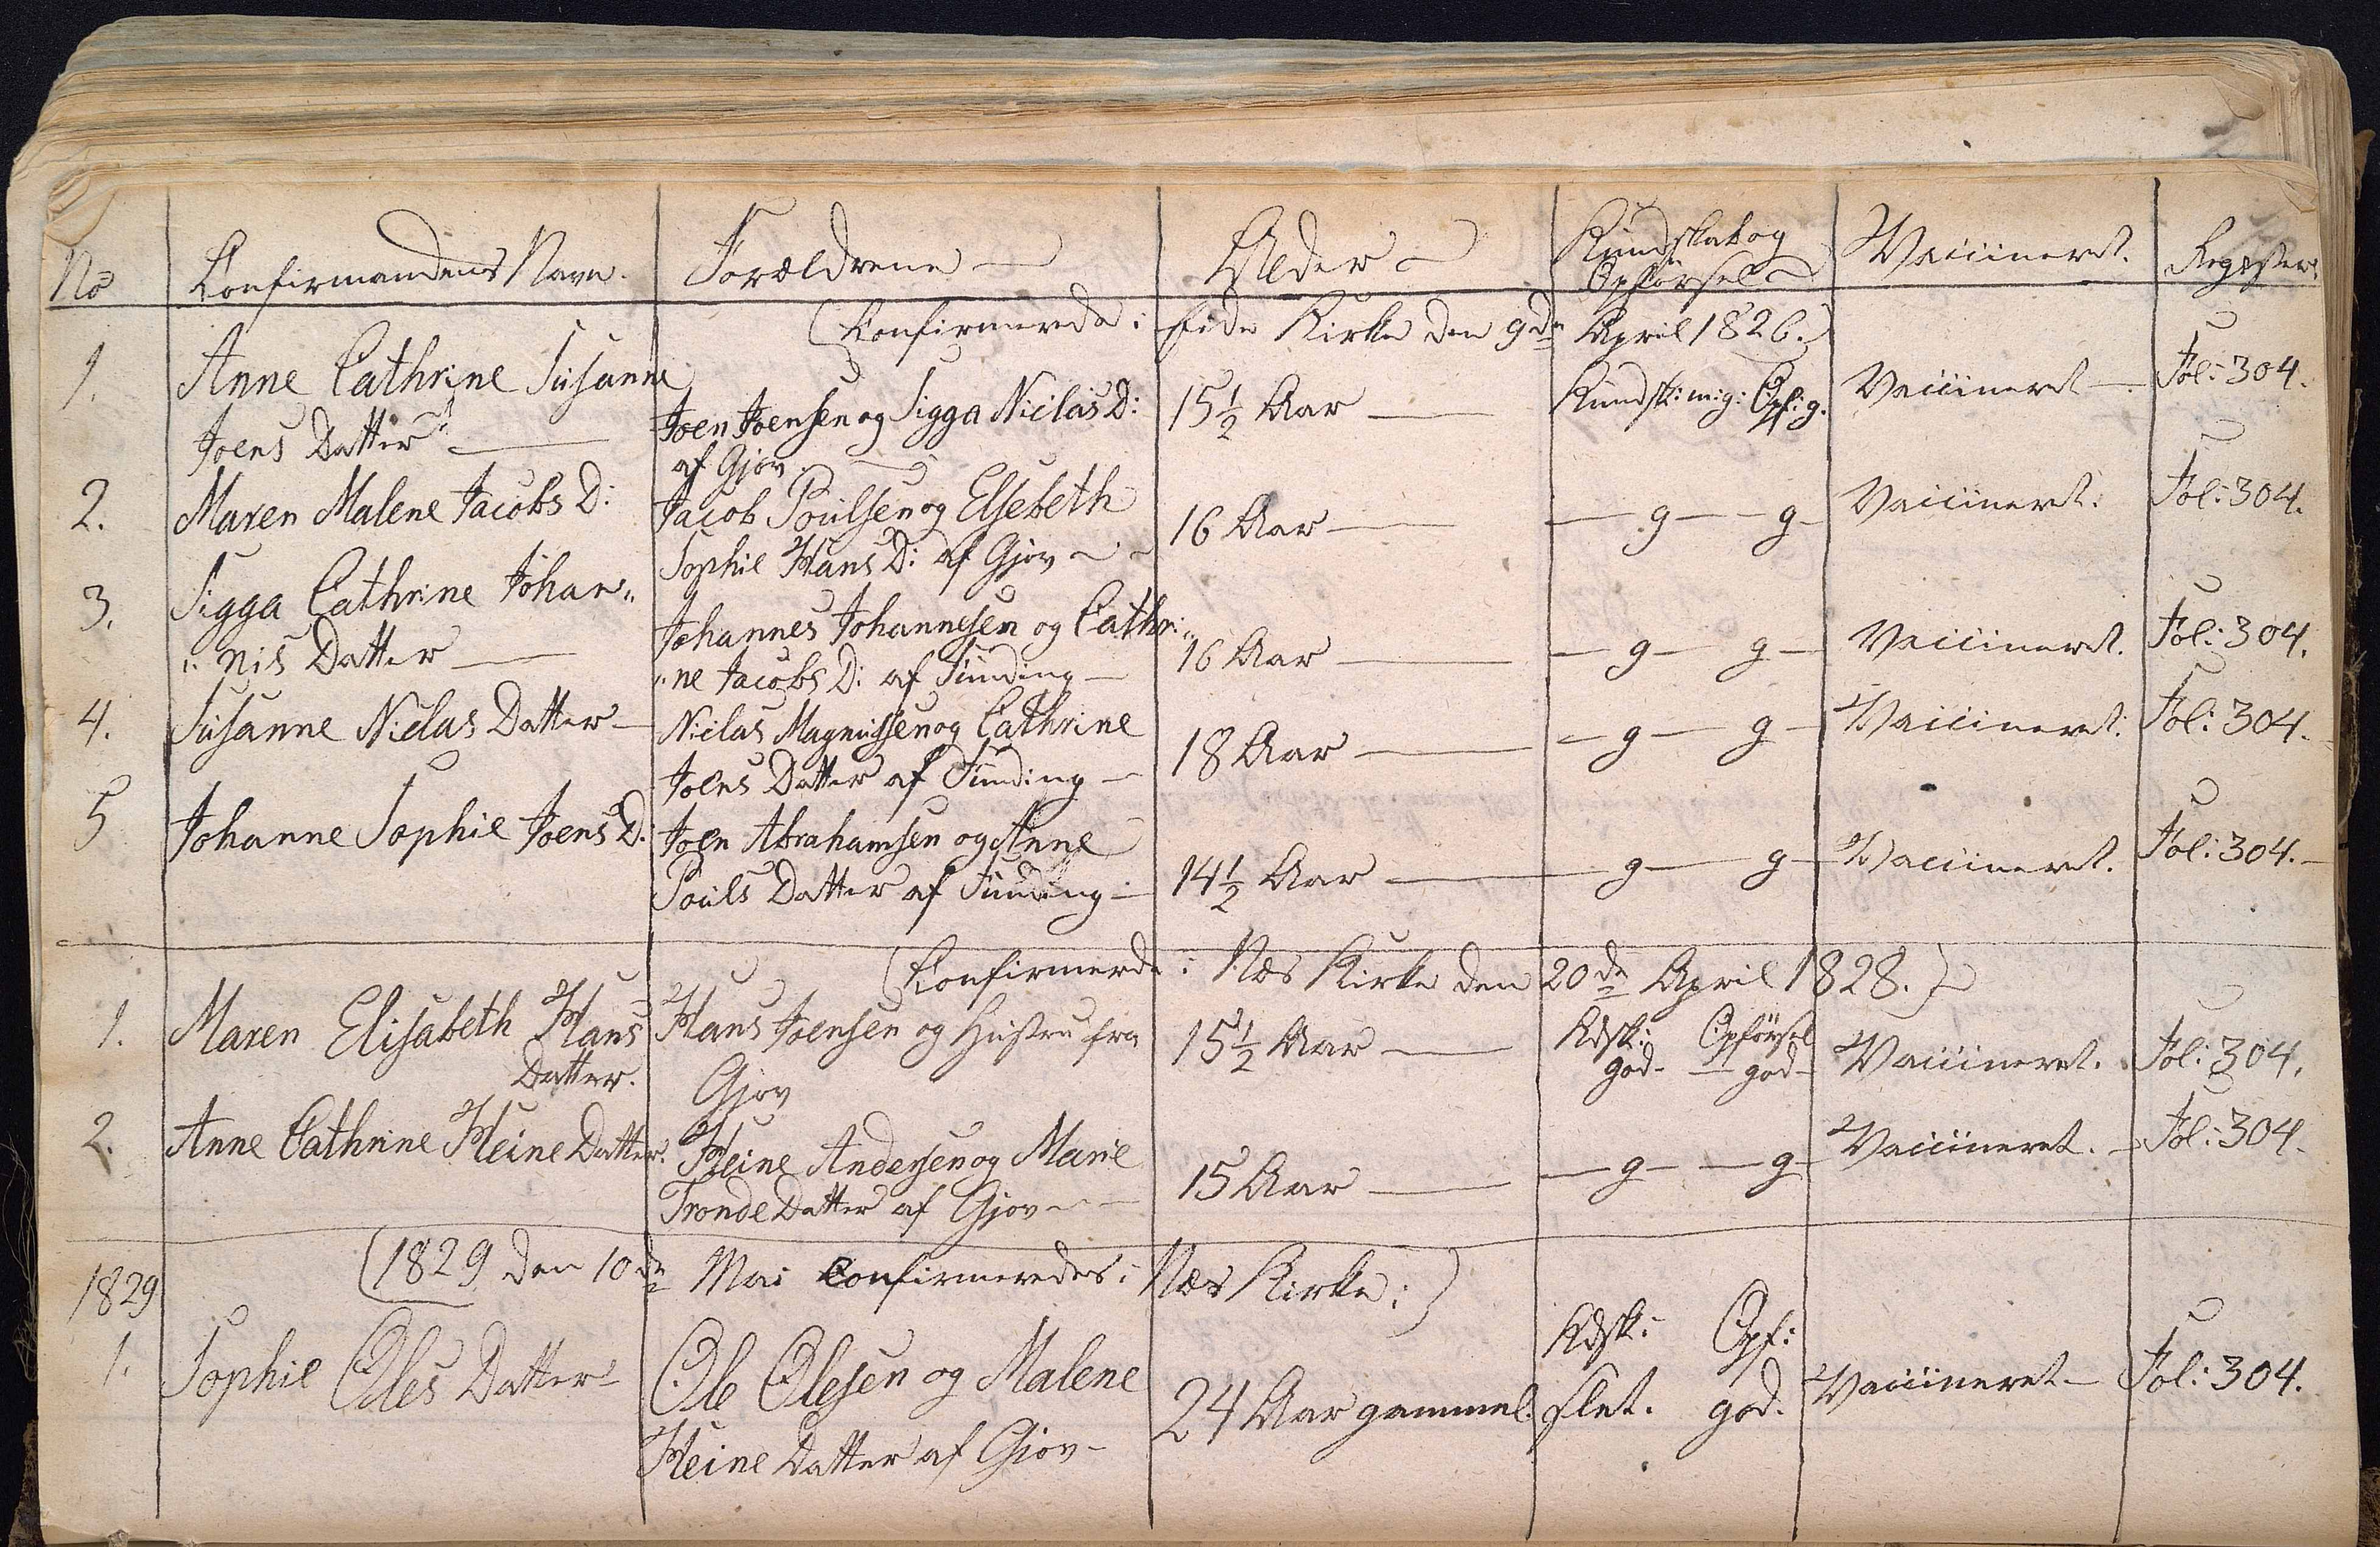 No Confirmandens Navn. Forældrene Alder Kundskab og Opførsel Vaccineret. Register.
(Confirmerde i Eide Kirke den 9de April 1826.)
1. Anne Cathrine Susanne Joen Joensen og Sigga Niclas D: 15 1/2 Aar Kundsk: mg: Opf: g. Vaccineret Fol: 304.
Joens Datter af Gjov.
2. Maren Malene Jacobs D: Jacob Poulsen og Elsebeth 16 Aar g g Vaccineret. Fol: 304.
Sophie Hans D: af Gjov
3. Sigga Cathrine Johan„ Johannes Johannesen og Cathri„ 16 Aar g g Vaccineret. Fol: 304.
„nis Datter „ne Jacobs D: af Funding
4. Susanne Niclas Datter Niclas Magnussen og Cathrine 18 Aar g g Vaccineret. Fol: 304.
Joens Datter af Funding
5 Johanne Sophie Joens D: Joen Abrahamsen og Anne 14 1/2 Aar g g Vaccineret. Fol: 304.
Pouls Datter af Funding
(Confirmerde i Næs Kirke den 20de April 1828.)
1. Maren Elisabeth Hans Hans Joensen og Hustru fra 15 1/2 Aar Kdsk: Opførsel Vaccineret. Fol: 304.
Datter. Gjov god god
2. Anne Cathrine Heine Datter. Heine Andersen og Marie 15 Aar g g Vaccineret. Fol: 304.
Tronde Datter af Gjov
1829 (1829 den 10de Mai Confirmeredes i Næs Kirke:)
Kdsk: Opf:
1. Sophie Oles Datter Ole Olesen og Malene 24 Aar gammel. slet. god. Vaccineret Fol: 304.
Heine Datter af Gjov